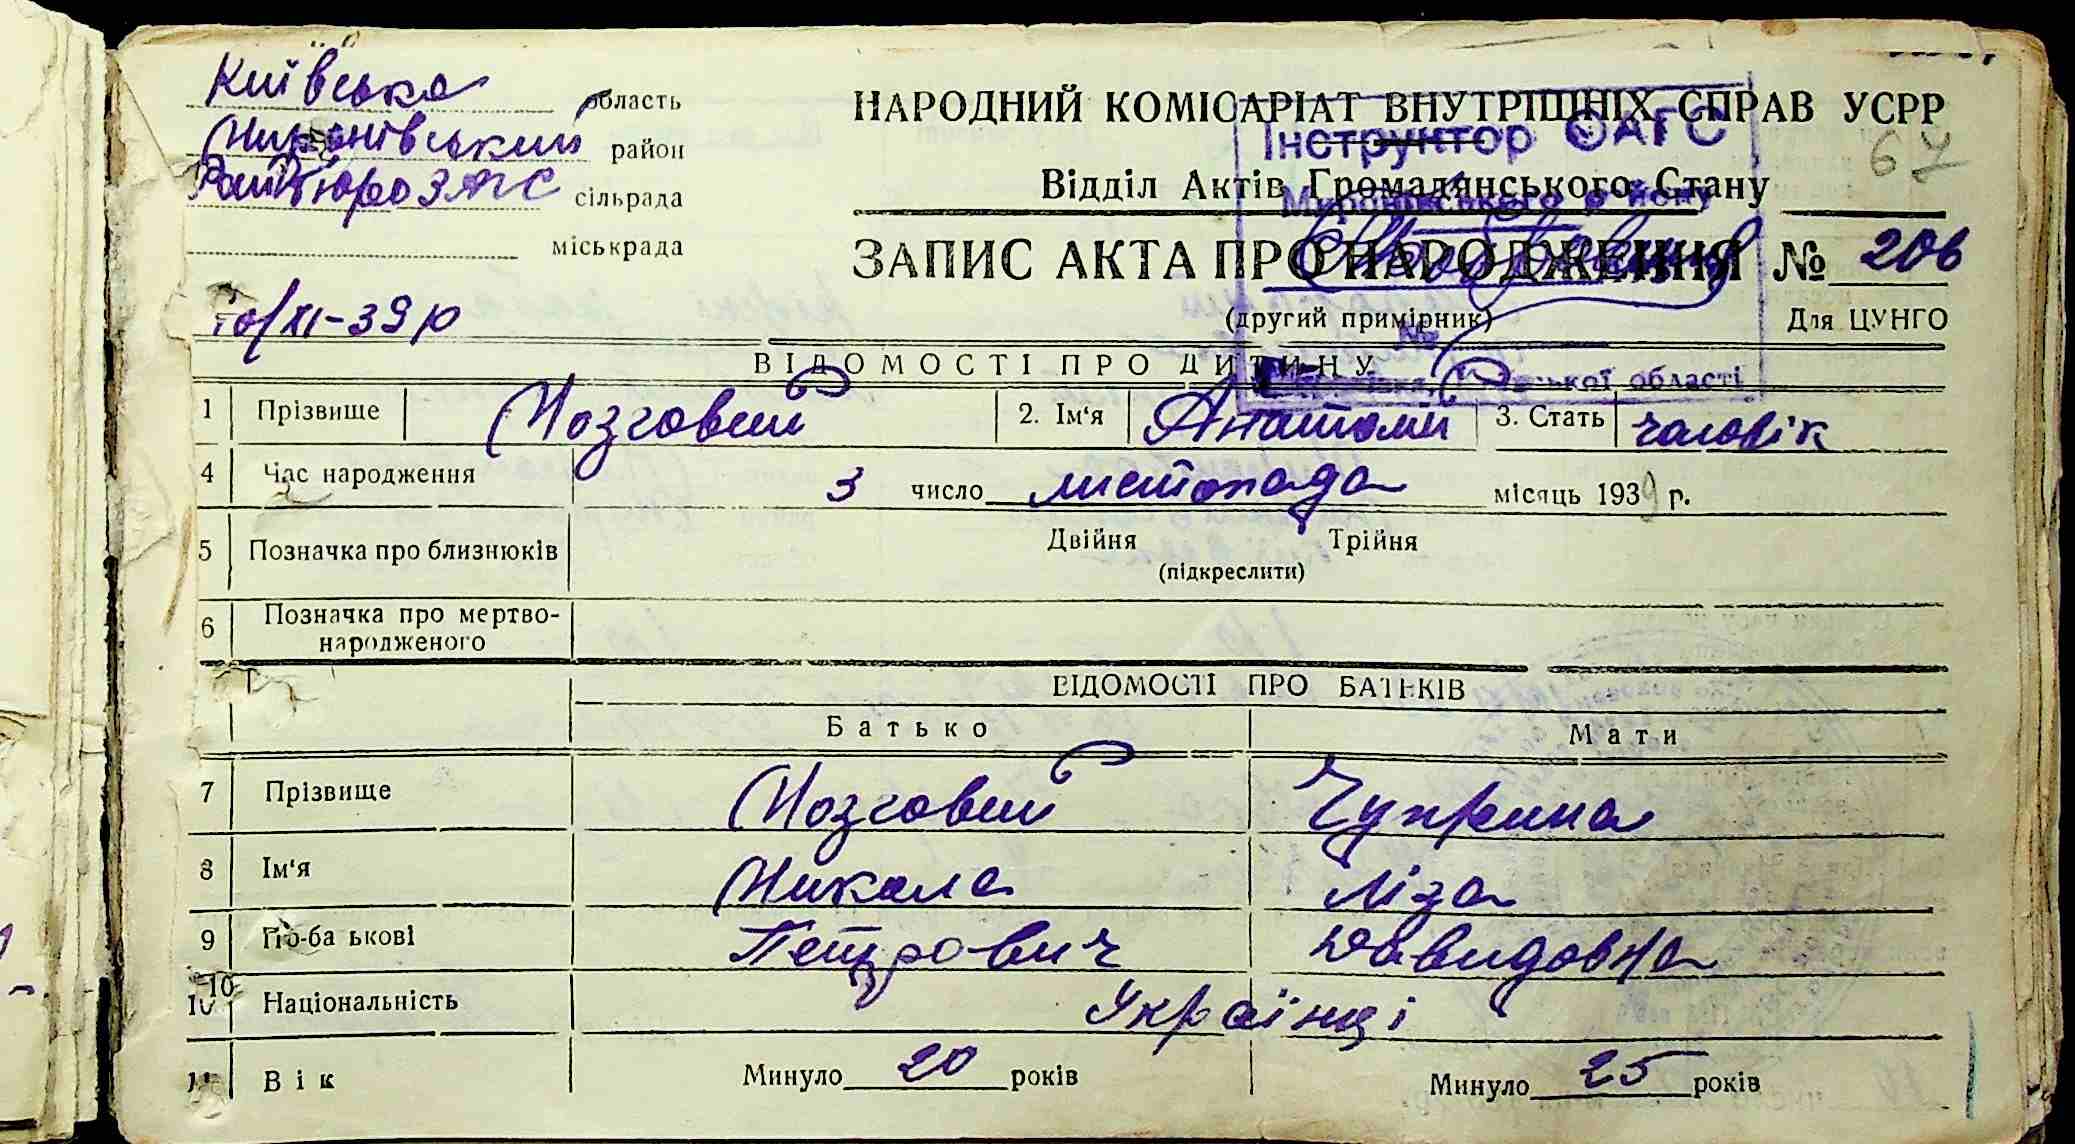 Київська область
Миронівський район
Райбюро ЗАГС сільрада
міськрада
10/XI-39 р
НАРОДНИЙ КОМІСАРІАТ ВНУТРІШНІХ СПРАВ УСРР
Інструктор ОАГС
67
Відділ Актів Громадянського Стану
Миронівського району
ЗАПИС АКТА ПРО НАРОДЖЕННЯ № 206
(другий примірник) Для ЦУНГО
№
ської області
ВІДОМОСТІ ПРО ДИТИНУ
1 Прізвище Мозговий 2. Ім'я Анатолий 3. Стать чоловік
4 Час народження 3 число листопада місяць 1939 р.
5 Позначка про близнюків Двійня Трійня
(підкреслити)
6 Позначка про мертво-
народженого
ВІДОМОСТІ ПРО БАТЬКІВ
Батько Мати
7 Прізвище Мозговий Чуприна
8 Ім'я Микола Ліза
9 По-ба ькові Петрович Давидовна
10
10 Національність Українці
11 Вік Минуло 20 років Минуло 25 років